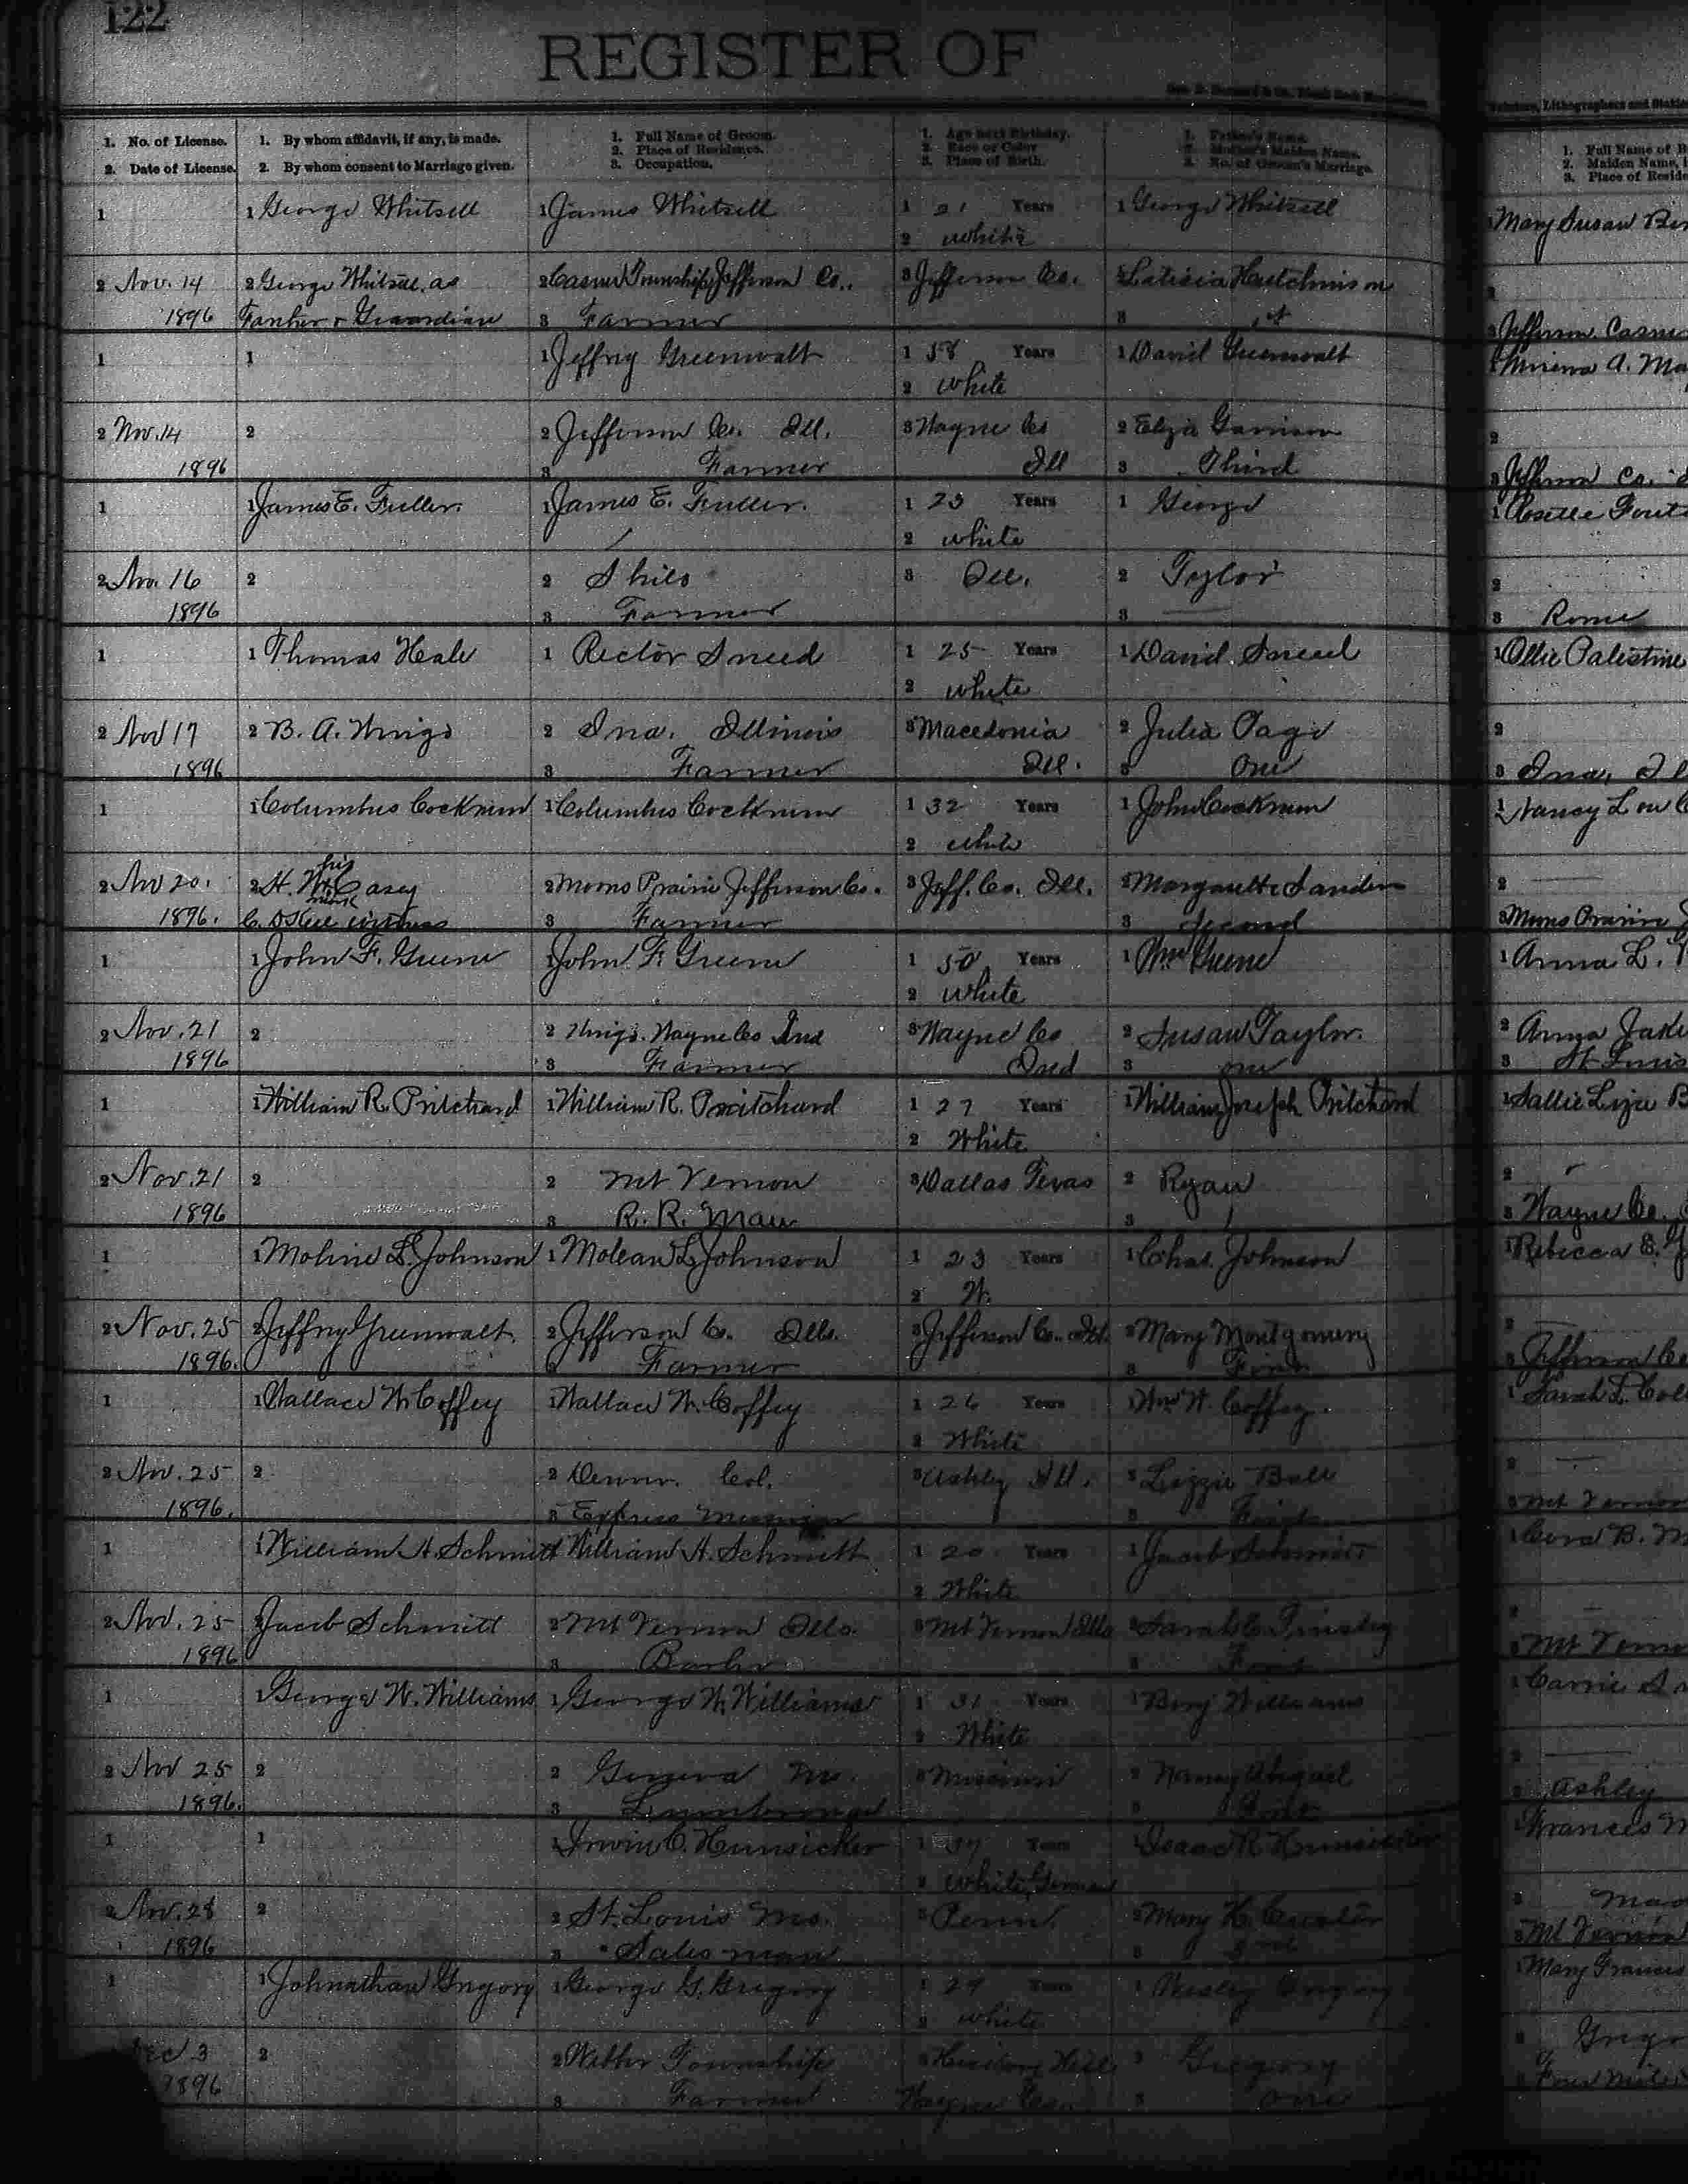 122
REGISTER OF
1. No. of License.
2. Date of License.
1. By whom affidavit, if any, is made.
2. By whom consent to Marriage given.
1. Full Name of Groom.
2. Place of Residence.
3. Occupation.
1. Age next Birthday.
2. Race or Color
3. Place of Birth.
1. Father's Name.
2. Mother's Maiden Name.
3. No. of Groom's Marriage.
1. Full Name of B
2. Maiden Name, i
3. Place of Reside
1 1 George Whitsell 1 James Whitsell 1 21 Years 1 George Whitsell Mary Susan
2 white
2 Nov. 14 2 George Whitsell, as 2 Casner Township Jefferson Co.. 3 Jefferson Co. 2 Laticia Hutchinson
1896 Farther & Guardian 3 Farmer 3 1st 3 Jefferson Casne
1 1 1 Jeffrey Greenwalt 1 58 Years 1 David Greenwalt A. Ma
2 white
2 Nov. 14 2 2 Jefferson Co. Ill. 3 Wayne Co 2 Eliza Garrison
1896 3 Farmer Ill 3 Third 3 Jefferson Co.
1 1 James E. Fuller. 1 James E. Fuller. 1 23 Years 1 George 1
2 white
2 Nov. 16 2 2 Shilo 3 Ill. 2 Tylor 2
1896 3 Farmer 3 3 Rome
1 1 Thomas Heale 1 Rector Sneed 1 25 Years 1 David Sneed 1 Ollie Palestine
2 white
2 Nov 17 2 B. A. 2 Ina. Illinois 3 Macedonia 2 Julia Page 2
1896 3 Farmer Ill. 3 One 3 Ina, Il
1 1 Columbus Cockrum 1 Columbus Cockrum 1 32 Years 1 John Cockrum 1 Nancy Lou C
2 white
his
2 Nov 20. 2 H. W. Casey 2 Moors Prairie Jefferson Co. 3 Jeff. Co. Ill. 2 Margarette Sanders 2
mark
1896. witness 3 Farmer 3 Second 3 Prairie
1 1 John F. Greene 1 John F. Greene 1 50 Years 1 Wm Greene 1 Anna L.
2 white
2 Nov. 21 2 2 Wayne Co Ind 3 Wayne Co 2 Susan Taylor. 2 Anna
1896 3 Farmer Ind 3 one 3 St Louis
1 1 William R. Pritchard 1 William R. Pritchard 1 27 Years 1 William Joseph Pritchard 1 Sallie B
2 White
2 Nov. 21 2 2 Mt Vernon 3 Dallas Texas 2 Ryan 2
1896 3 R. R. Man 3 1 3 Wayne Co.
1 1 Moline L. Johnson 1 Molean L Johnson 1 23 Years 1 Chas. Johnson 1 Rebecca
2 W.
2 Nov. 25 2 Jeffrey Greenwalt. 2 Jefferson Co. Ills. 3 Jefferson Co. Ill. 2 Mary Montgomery 2
1896. 3 Farmer 3 First 3 Jefferson Co
1 1 Wallace W. Coffey 1 Wallace W. Coffey 1 26 Years 1 Wm W. Coffey 1 Sarah L. Col
2 White
2 Nov. 25 2 2 Denver. Col. 3 Ashley Ill. 2 Lizzie Ball
1896. 3 Express Messenger 3 First 3 Mt Vernon
1 1 William H. Schmitt 1 William H. Schmitt 1 20 Years 1 Jacob Schmitt 1 Cora B. M
2 White
2 Nov. 25 2 Jacob Schmitt 2 Mt Vernon Ills. 3 Mt Vernon Ills 2 Sarah C.
1896 3 Barber 3 First 3 Mt Verno
1 1 George W. Williams 1 George W. Williams 1 31 Years 1 Benj Williams 1 Carrie
2 White
2 Nov 25 2 2 Geneva Mo. 3 Missouri 2 Nancy
1896. 3 Lumberman 3 3 Ashley
1 1 1 Irwin C. Hunsicker 1 37 Years 1 Isaac R Hunsicker 1 Frances M
2 White German
2 Nov. 28 2 2 St. Louis Mo. 3 Penn. 2 Mary H. 2
1896 3 Salesman 3 3 Mt Vernon
1 1 Johnathan Gregory 1 George G. Gregory 1 29 Years 1 Wesley Gregory 1 Mary Frances
2 white
Dec 3 2 2 Webber Township 3 Hickory Hill 2 Gregory 2 Grego
1896 3 Farmer Wayne 3 one 3 Four